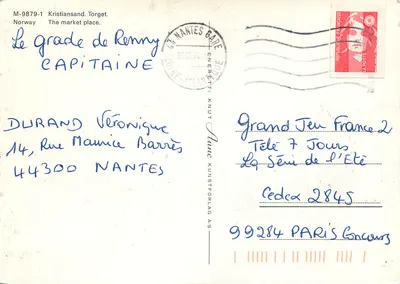 M-9879-1 Kristiansand. Torget.
Norway The market place.
Le grade de Renny
CAPITAINE
44 NANTES GARE
DURAND Véronique
14, Rue Maurice Barrès
44300 NANTES
ENERETT: KNUT Aune KUNSTFORLAG AS
Grand Jeu France 2
Télé 7 Jours
La Série de l'Eté
Cedex 2845
99284 PARIS Concours